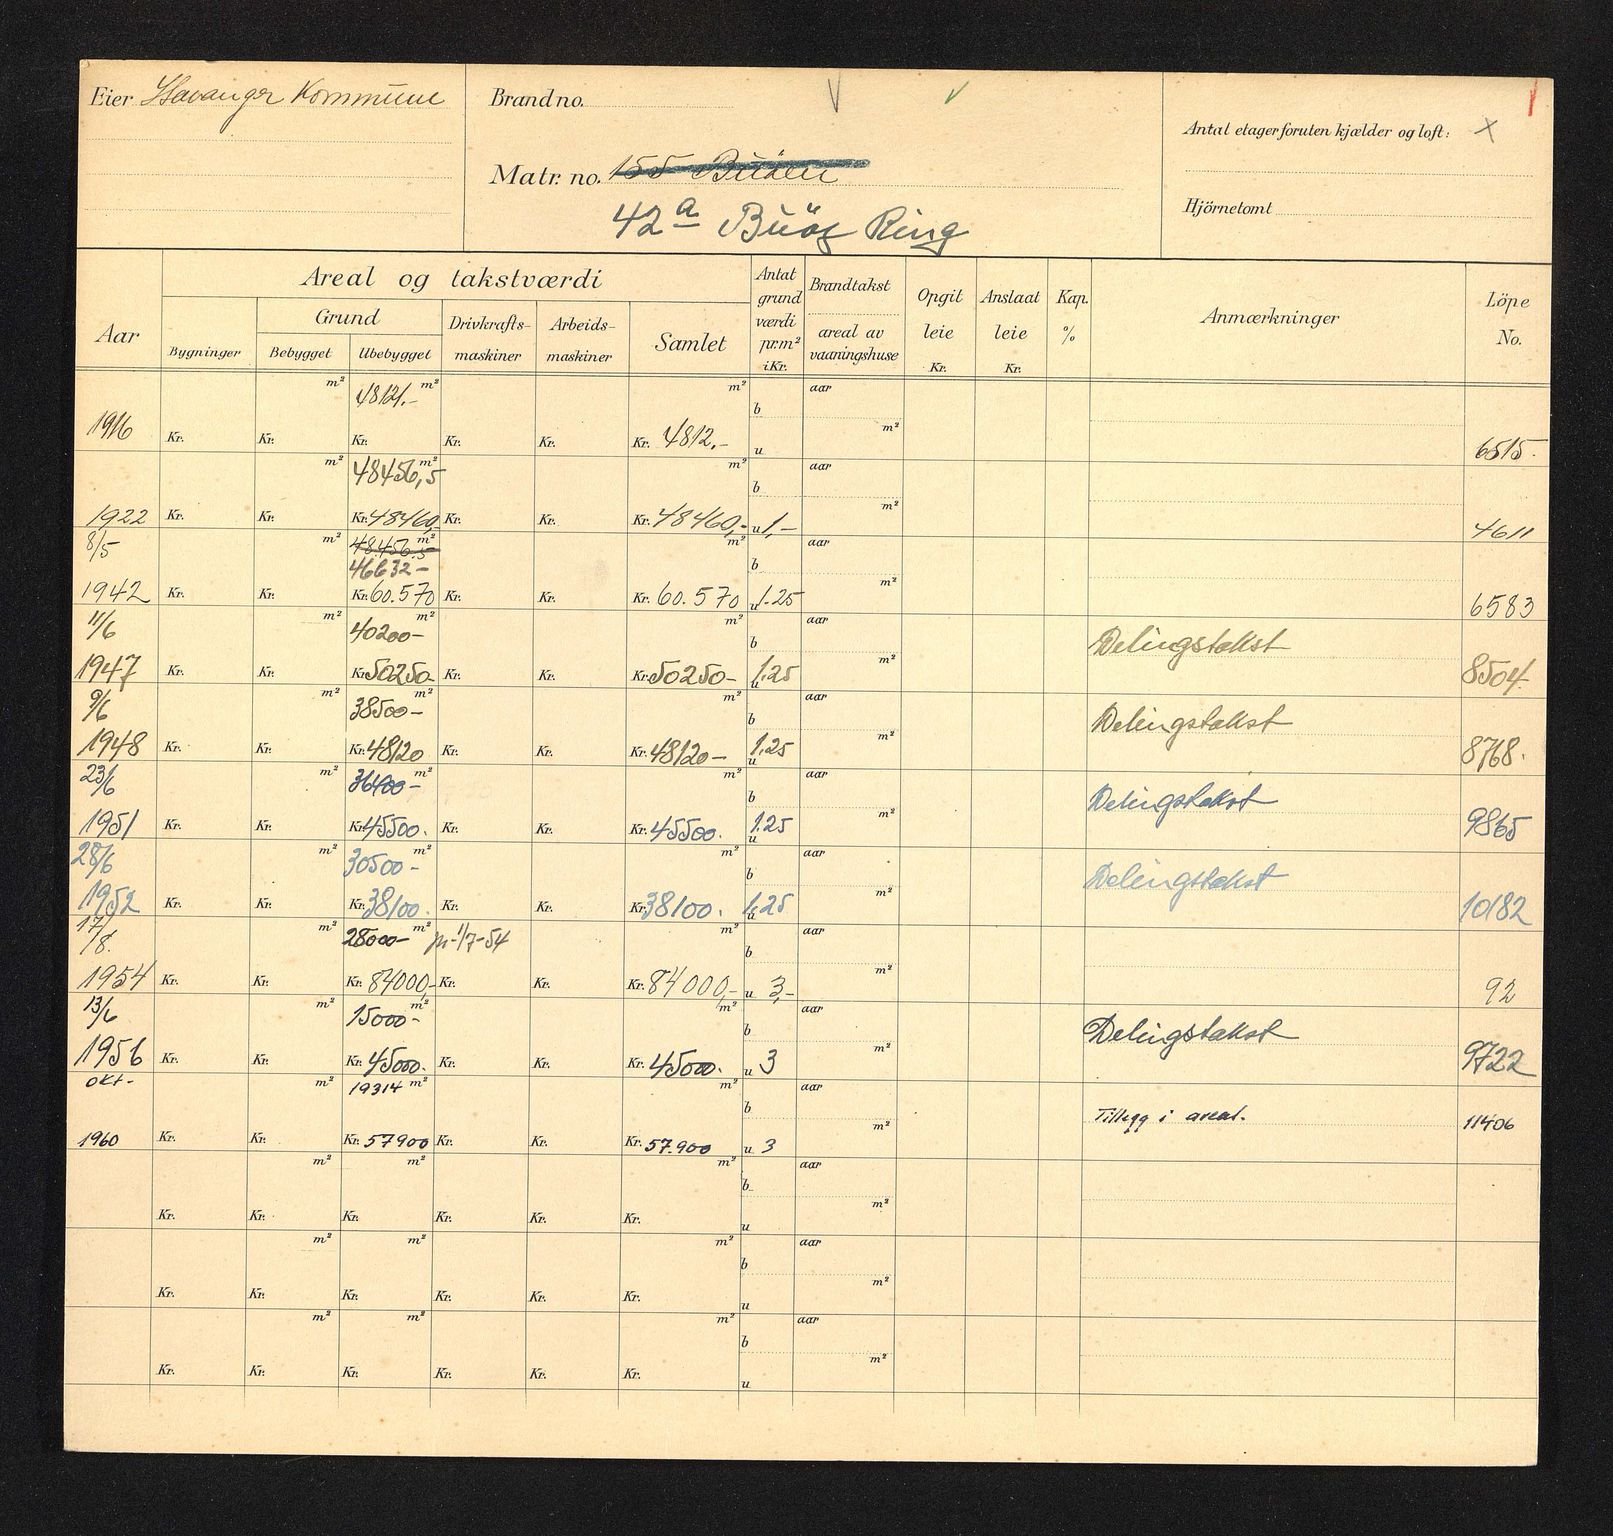 Eier Stavanger Kommune
Brandno.
Matr. no. 155 Buöen
42a Buöy Ring
Antal etager foruten kjælder og loft: X
Hjörnetomt
Aar
Areal og takstværdi
Grund
Bygninger
Bebygget
Ubebygget
Drivkrafts-
maskiner
Arbeids-
maskiner
Samlet
Antat
grund
værdi
pr.m²
i Kr.
Brandtakst
areal av
vaaningshuse
Opgit
leie
Kr.
Anslaat
leie
Kr.
Kap.
%
Anmærkninger
Löpe
No.
m² 48121.- m² m² aar
b
m²
1916 Kr. Kr. Kr. Kr. Kr. Kr. 4812.- u 6515.
m² 48456,5 m² m² aar
b
m²
1922 Kr. Kr. Kr. 48460,- Kr. Kr. Kr. 48460,- u 1,- 4611
8/5 m² 48.456.5 m² m² aar
46632- b
m²
1942 Kr. Kr. Kr. 60.570 Kr. Kr. Kr. 60.570 u 1.25 6583
11/6 m² 40200- m² m² aar
b Delingstakst
m²
1947 Kr. Kr. Kr. 50250- Kr. Kr. Kr. 50250- u 1.25 8504.
9/6 m² 38500- m² m² aar
b Delingstakst
m²
1948 Kr. Kr. Kr. 48120 Kr. Kr. Kr. 48120- u 1.25 8768.
23/6 m² 36400- m² m² aar
b Delingstakst
m²
1951 Kr. Kr. Kr. 45500. Kr. Kr. Kr. 45500. u 1.25 9865
28/6 m² 30500- m² m² aar
b Delingstakst
m²
1952 Kr. Kr. Kr. 38100. Kr. Kr. Kr. 38100. u 1.25 10182
17/8. m² 28000- m² pr-1/7-54 m² aar
b
m²
1954 Kr. Kr. Kr. 84000,- Kr. Kr. Kr. 84000,- u 3,- 92
13/6 m² 15000- m² m² aar
b Delingstakst
m²
1956 Kr. Kr. Kr. 45000. Kr. Kr. Kr. 45000. u 3 9722
okt- m² 19314 m² m² aar
b Tillegg i areal. 11406
m²
1960 Kr. Kr. Kr. 57900 Kr. Kr. Kr. 57.900 u 3
m² m² m² aar
b
m²
Kr. Kr. Kr. Kr. Kr. Kr. u
m² m² m² aar
b
m²
Kr. Kr. Kr. Kr. Kr. Kr. u
m² m² m² aar
b
m²
Kr. Kr. Kr. Kr. Kr. Kr. u